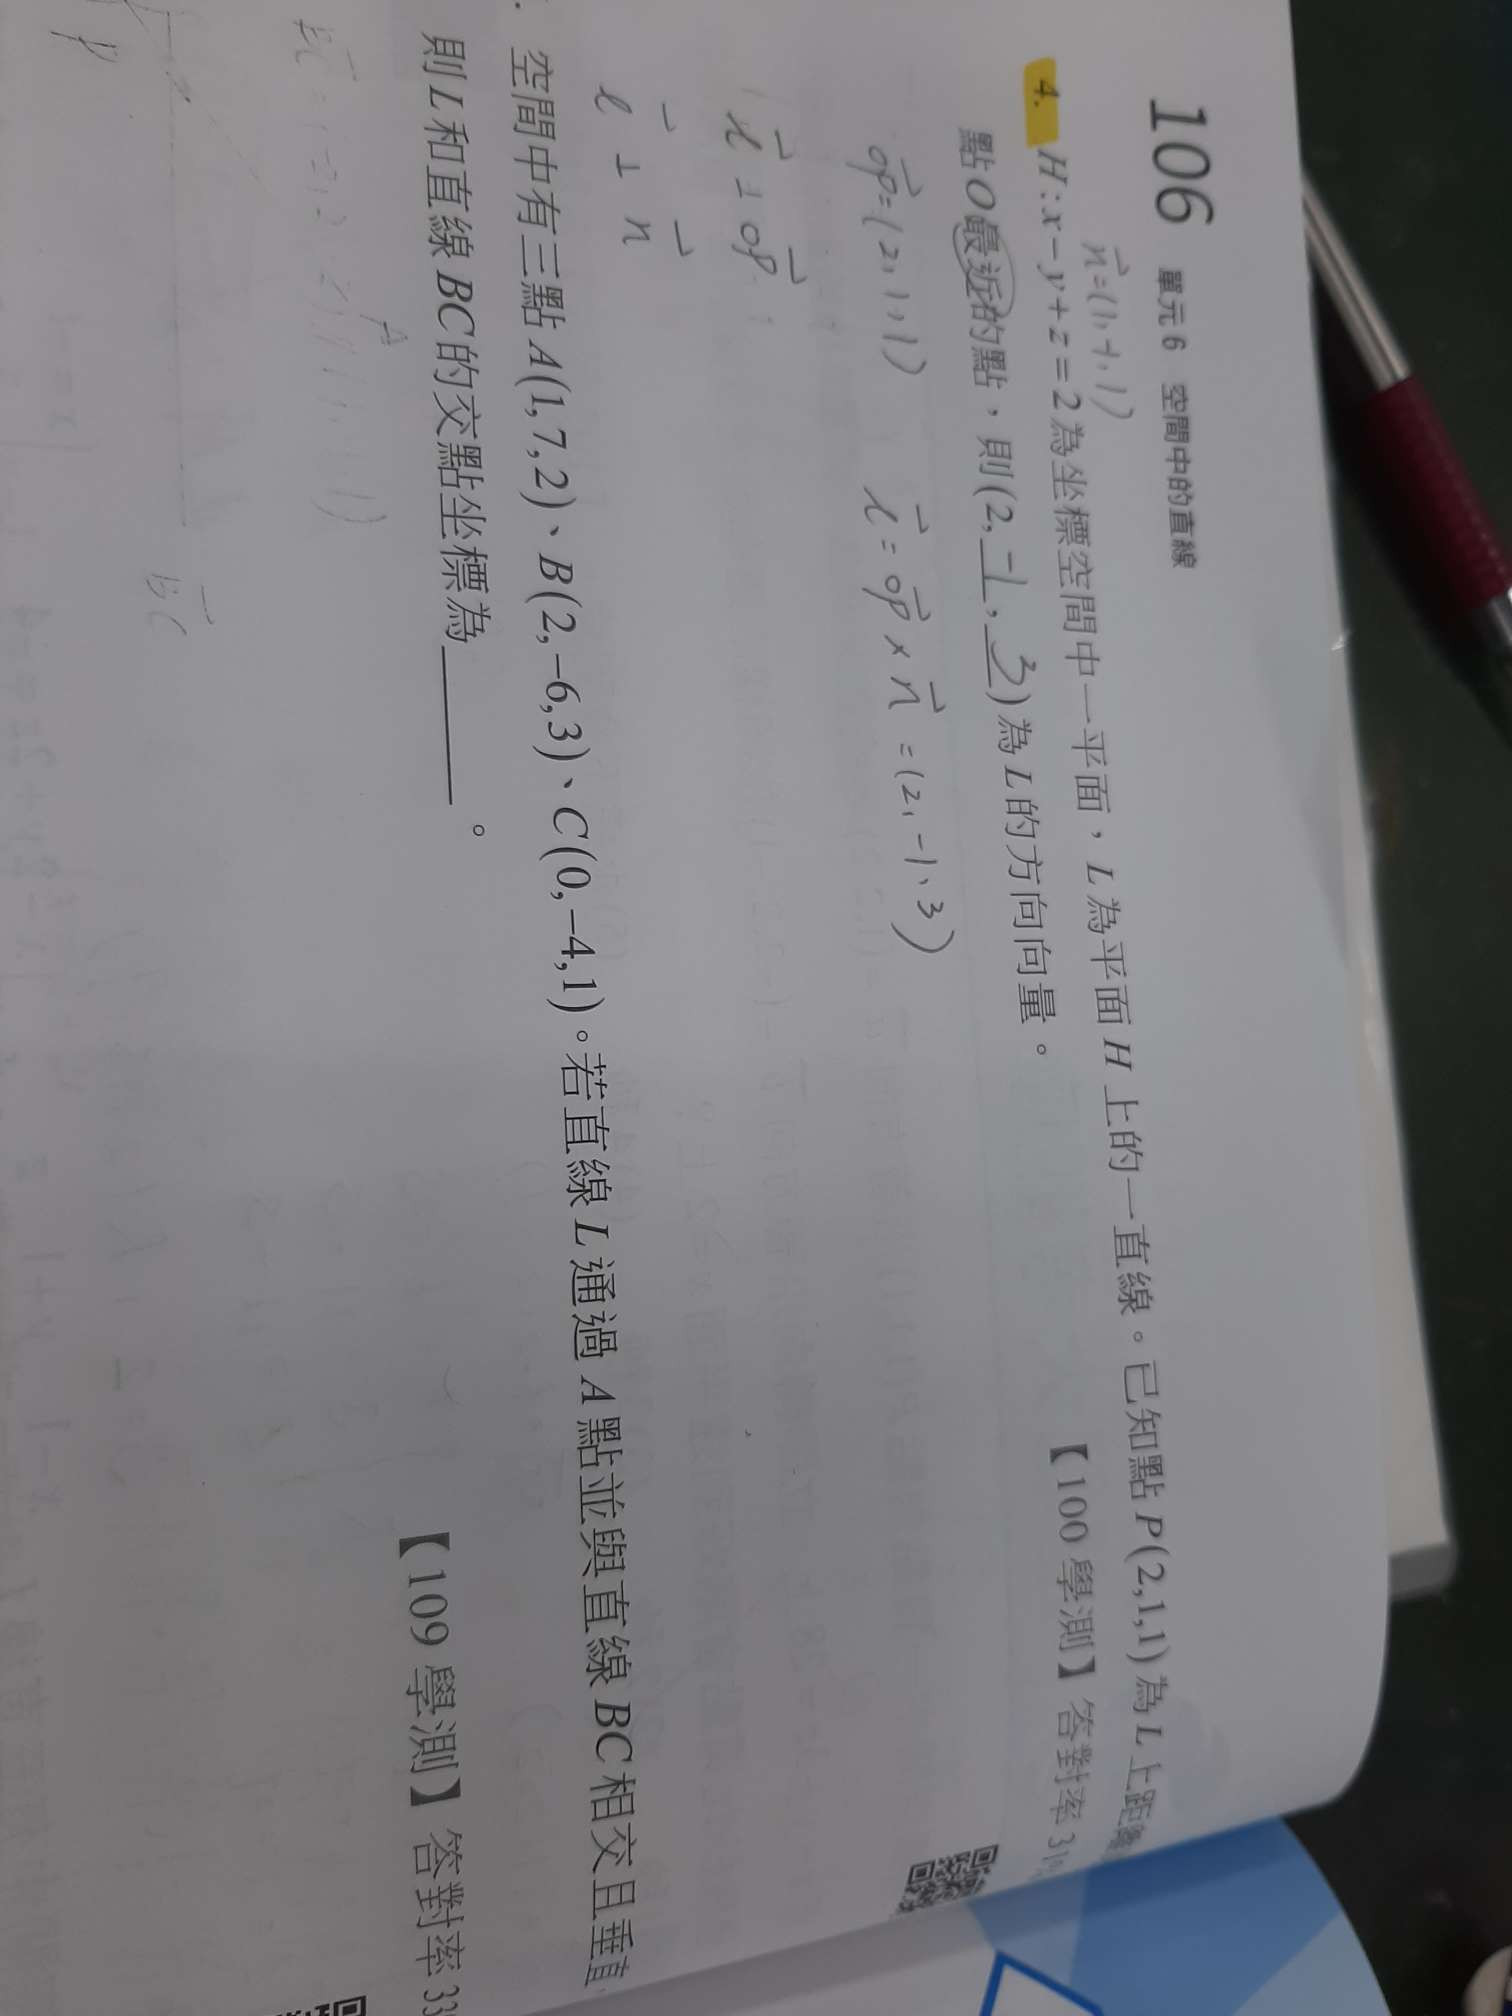 106 單元 6 空間中的直線
n⃗=(1,-1,1)
4. H:x-y+z=2為坐標空間中一平面，L為平面H上的一直線。已知點P(2,1,1)為L上距離
點O最近的點，則(2,-1,3)為L的方向向量。 【100學測】答對率31%
OP⃗=(2,1,1) l⃗=OP⃗×n⃗=(2,-1,3)
l⃗⊥OP⃗
l⃗⊥n⃗
. 空間中有三點A(1,7,2)、B(2,-6,3)、C(0,-4,1)。若直線L通過A點並與直線BC相交且垂直
則L和直線BC的交點坐標為______。 【109學測】答對率33
A
BC⃗
P